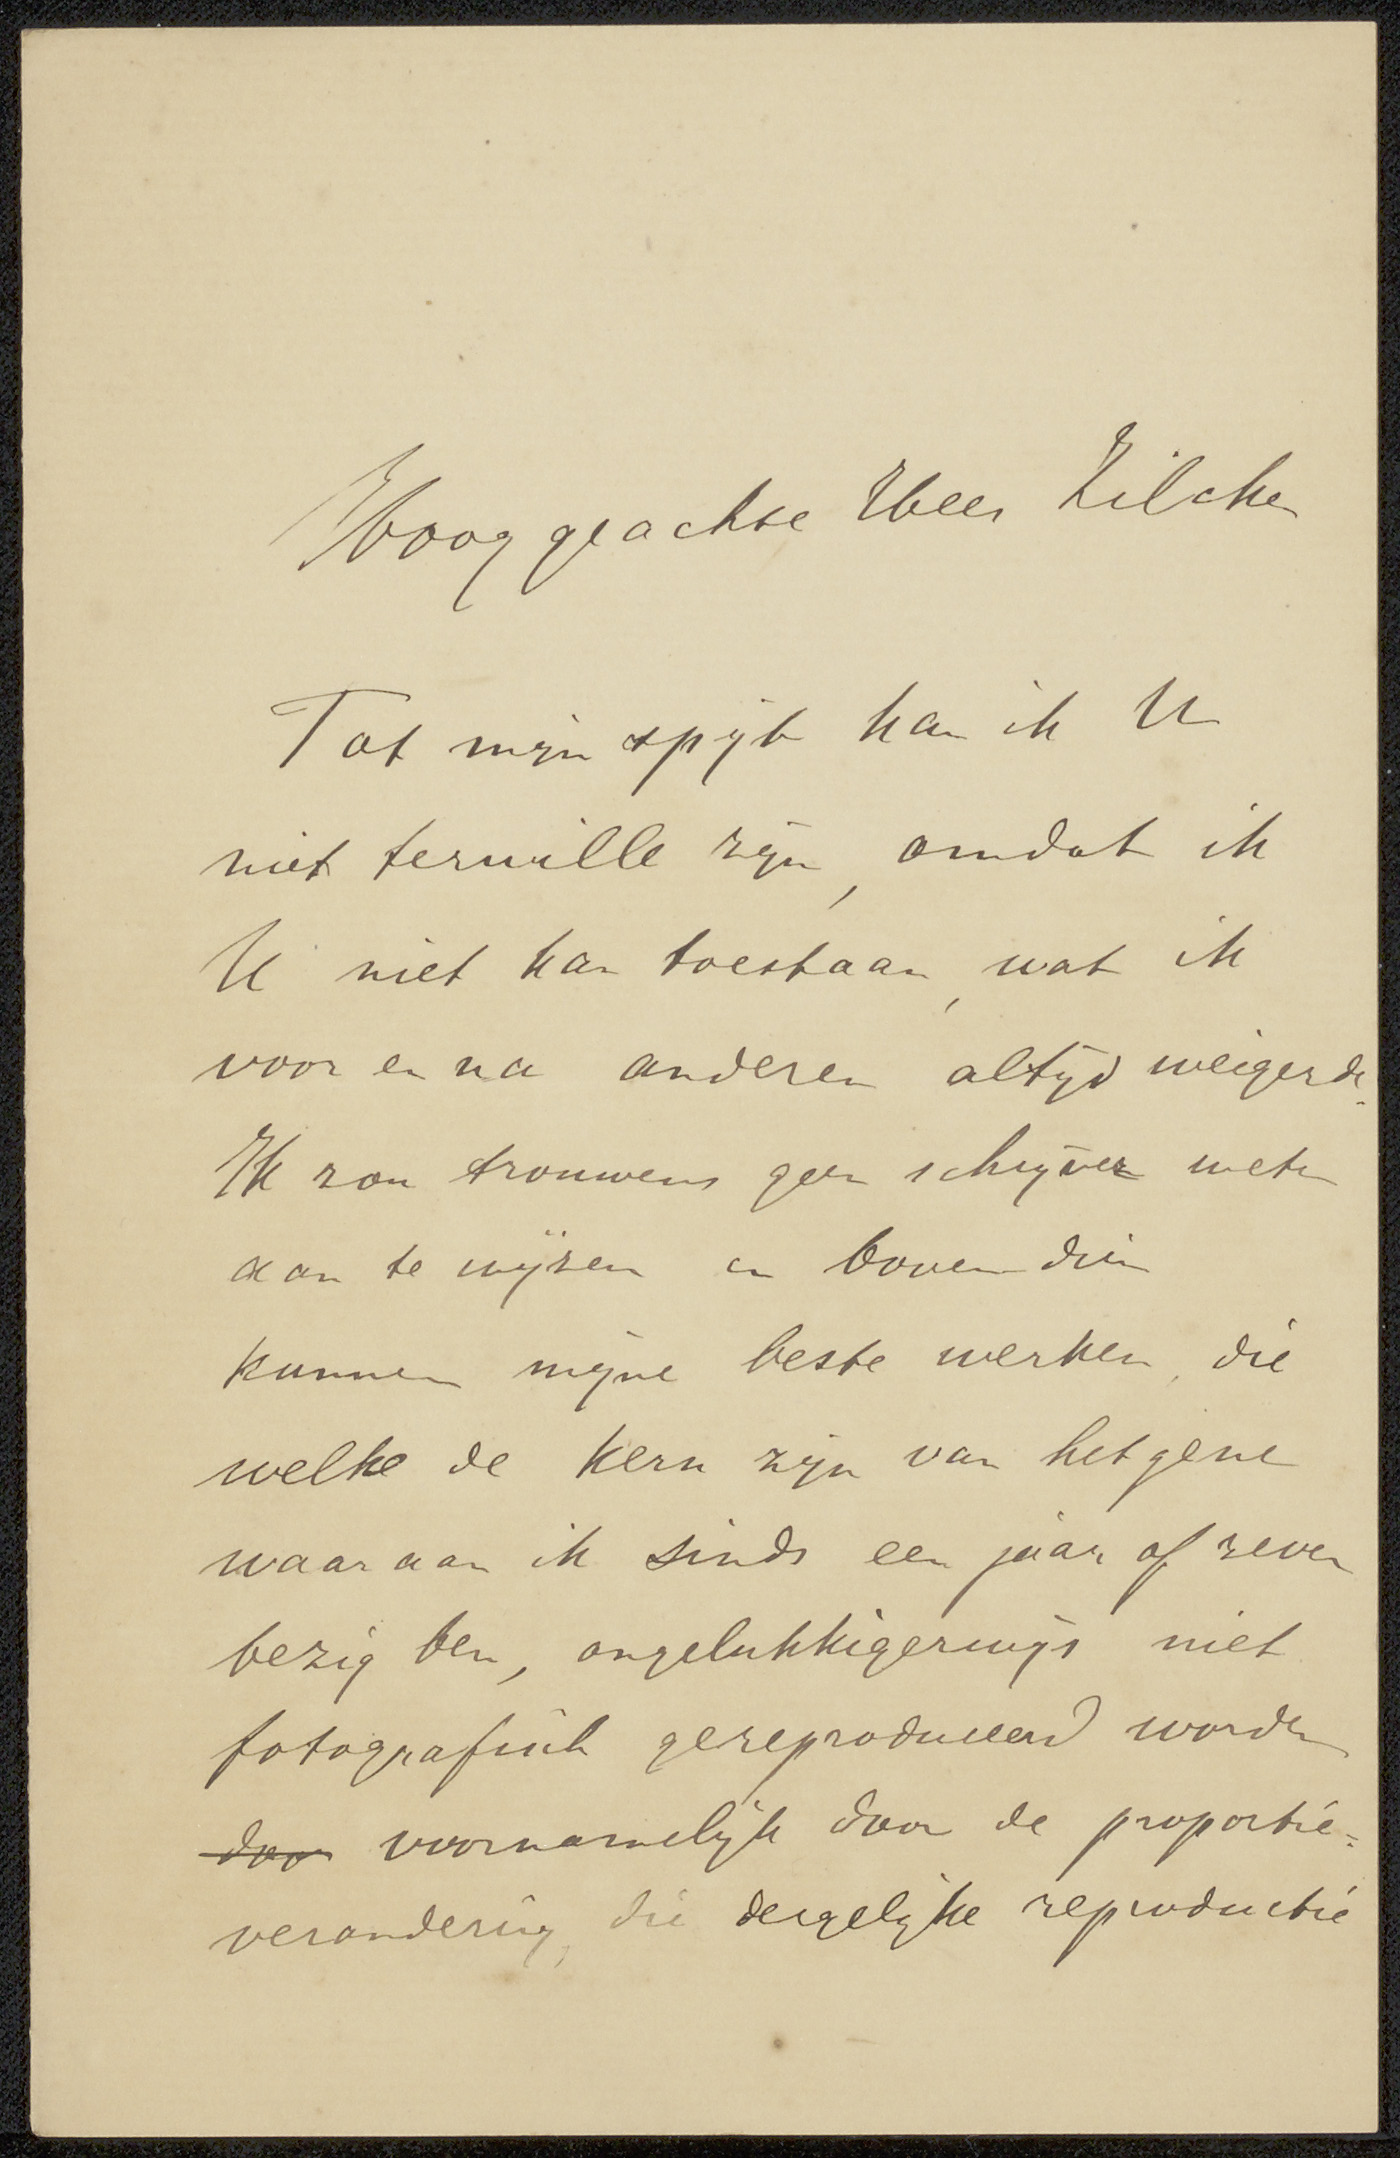 Hooggeachte Heer Zilcken
Tot mijn spijt kan ik U
niet terwille zijn, omdat ik
U niet kan toestaan, wat ik
voor en na anderen altijd weigerde.
Ik zou trouwens geen schrijver weten
aan te wijzen en bovendien
kunnen mijne beste werken, die
welke de kern zijn van hetgene
waaraan ik sinds een jaar of zeven
bezig ben, ongelukkigerwijs niet
fotografisch gereproduceerd worden
door voornamelijk door de proportie-
verandering, die dergelijke reproductie